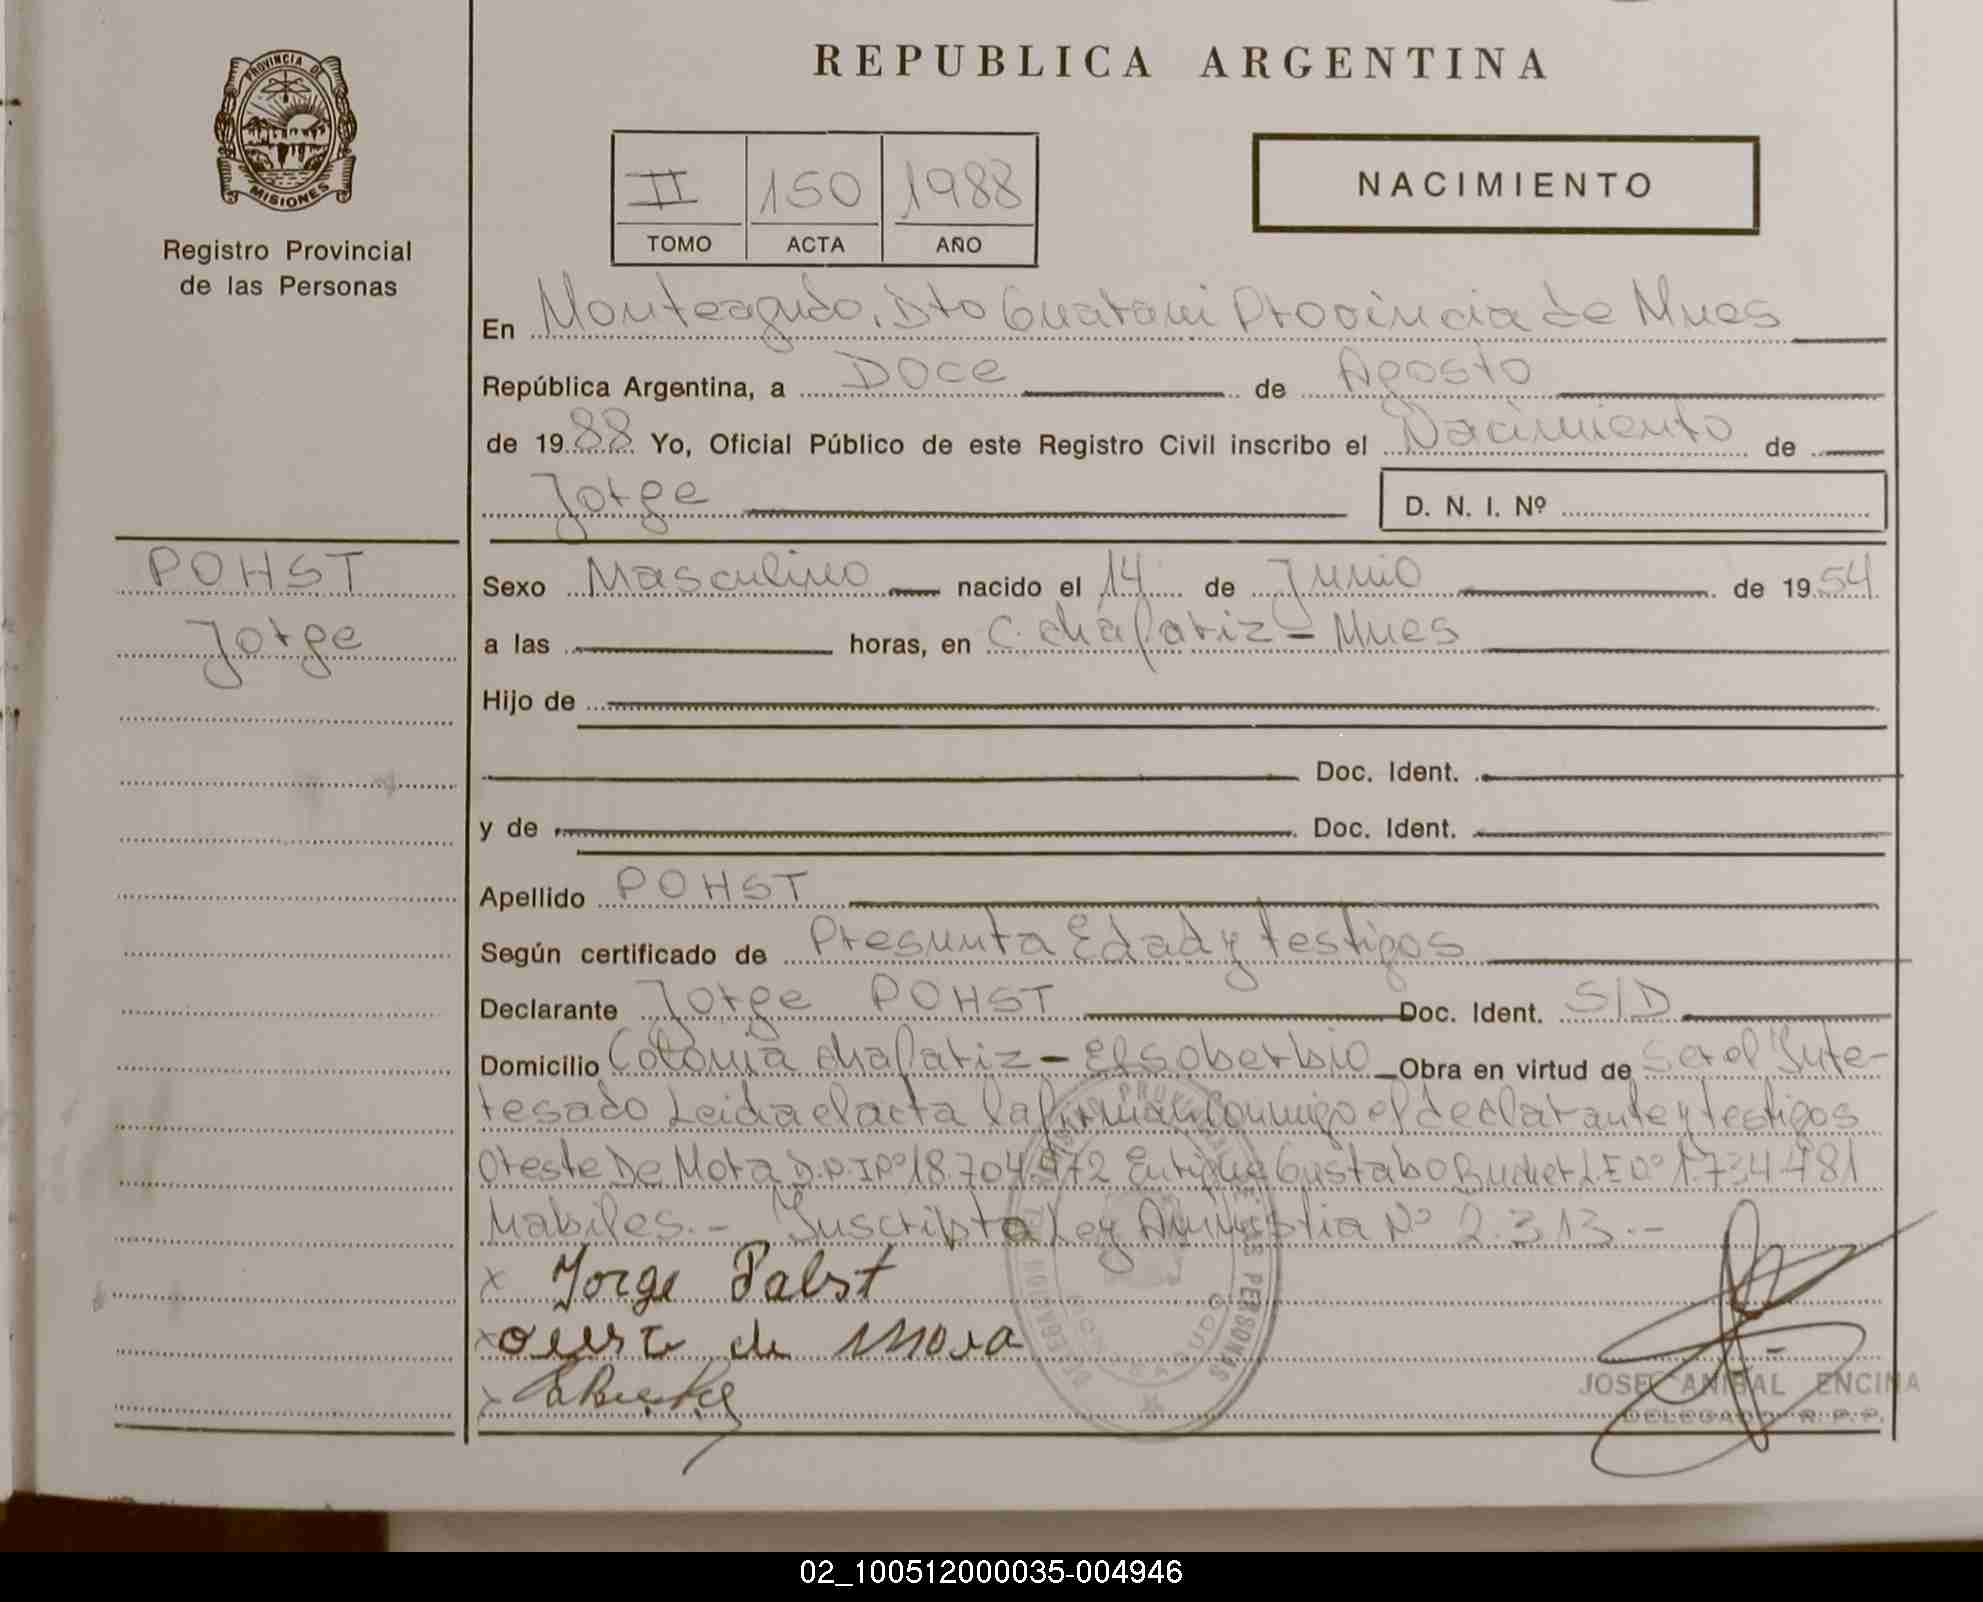 REPUBLICA ARGENTINA
PROVINCIA DE
MISIONES
Registro Provincial
de las Personas
II 150 1988
TOMO ACTA AÑO
NACIMIENTO
En Monteagudo, Dto Guarani Provincia de Mnes
República Argentina, a Doce de Agosto
de 1988 Yo, Oficial Público de este Registro Civil inscribo el Nacimiento de
Jorge
D. N. I. Nº
POHST
Jorge
Sexo Masculino nacido el 14 de Junio de 1954
a las horas, en C. chafariz - Mnes
Hijo de
Doc. Ident.
y de Doc. Ident.
Apellido POHST
Según certificado de Presunta Edad y testigos
Declarante Jorge POHST Doc. Ident. S/D
Domicilio Colonia chafariz - El soberbio Obra en virtud de Ser el Inte-
resado Leida el acta la firman conmigo el declarante y testigos
Oreste De Mora D.N.I Nº 18.704.972 Enrique Gustabo L.E Nº 1.734.781
habiles.- Inscripta Ley Amnistia Nº 2.313.-
x Jorge Pabst
x oreste de Mora
x
JOSE ANIBAL ENCINA
DELEGADO R. P. P.
02_100512000035-004946